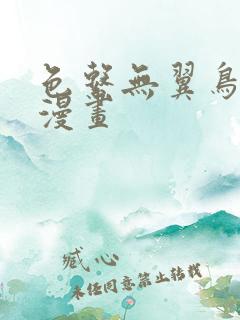 色整無翼鳥
漫畫
臧心
未经同意禁止转载